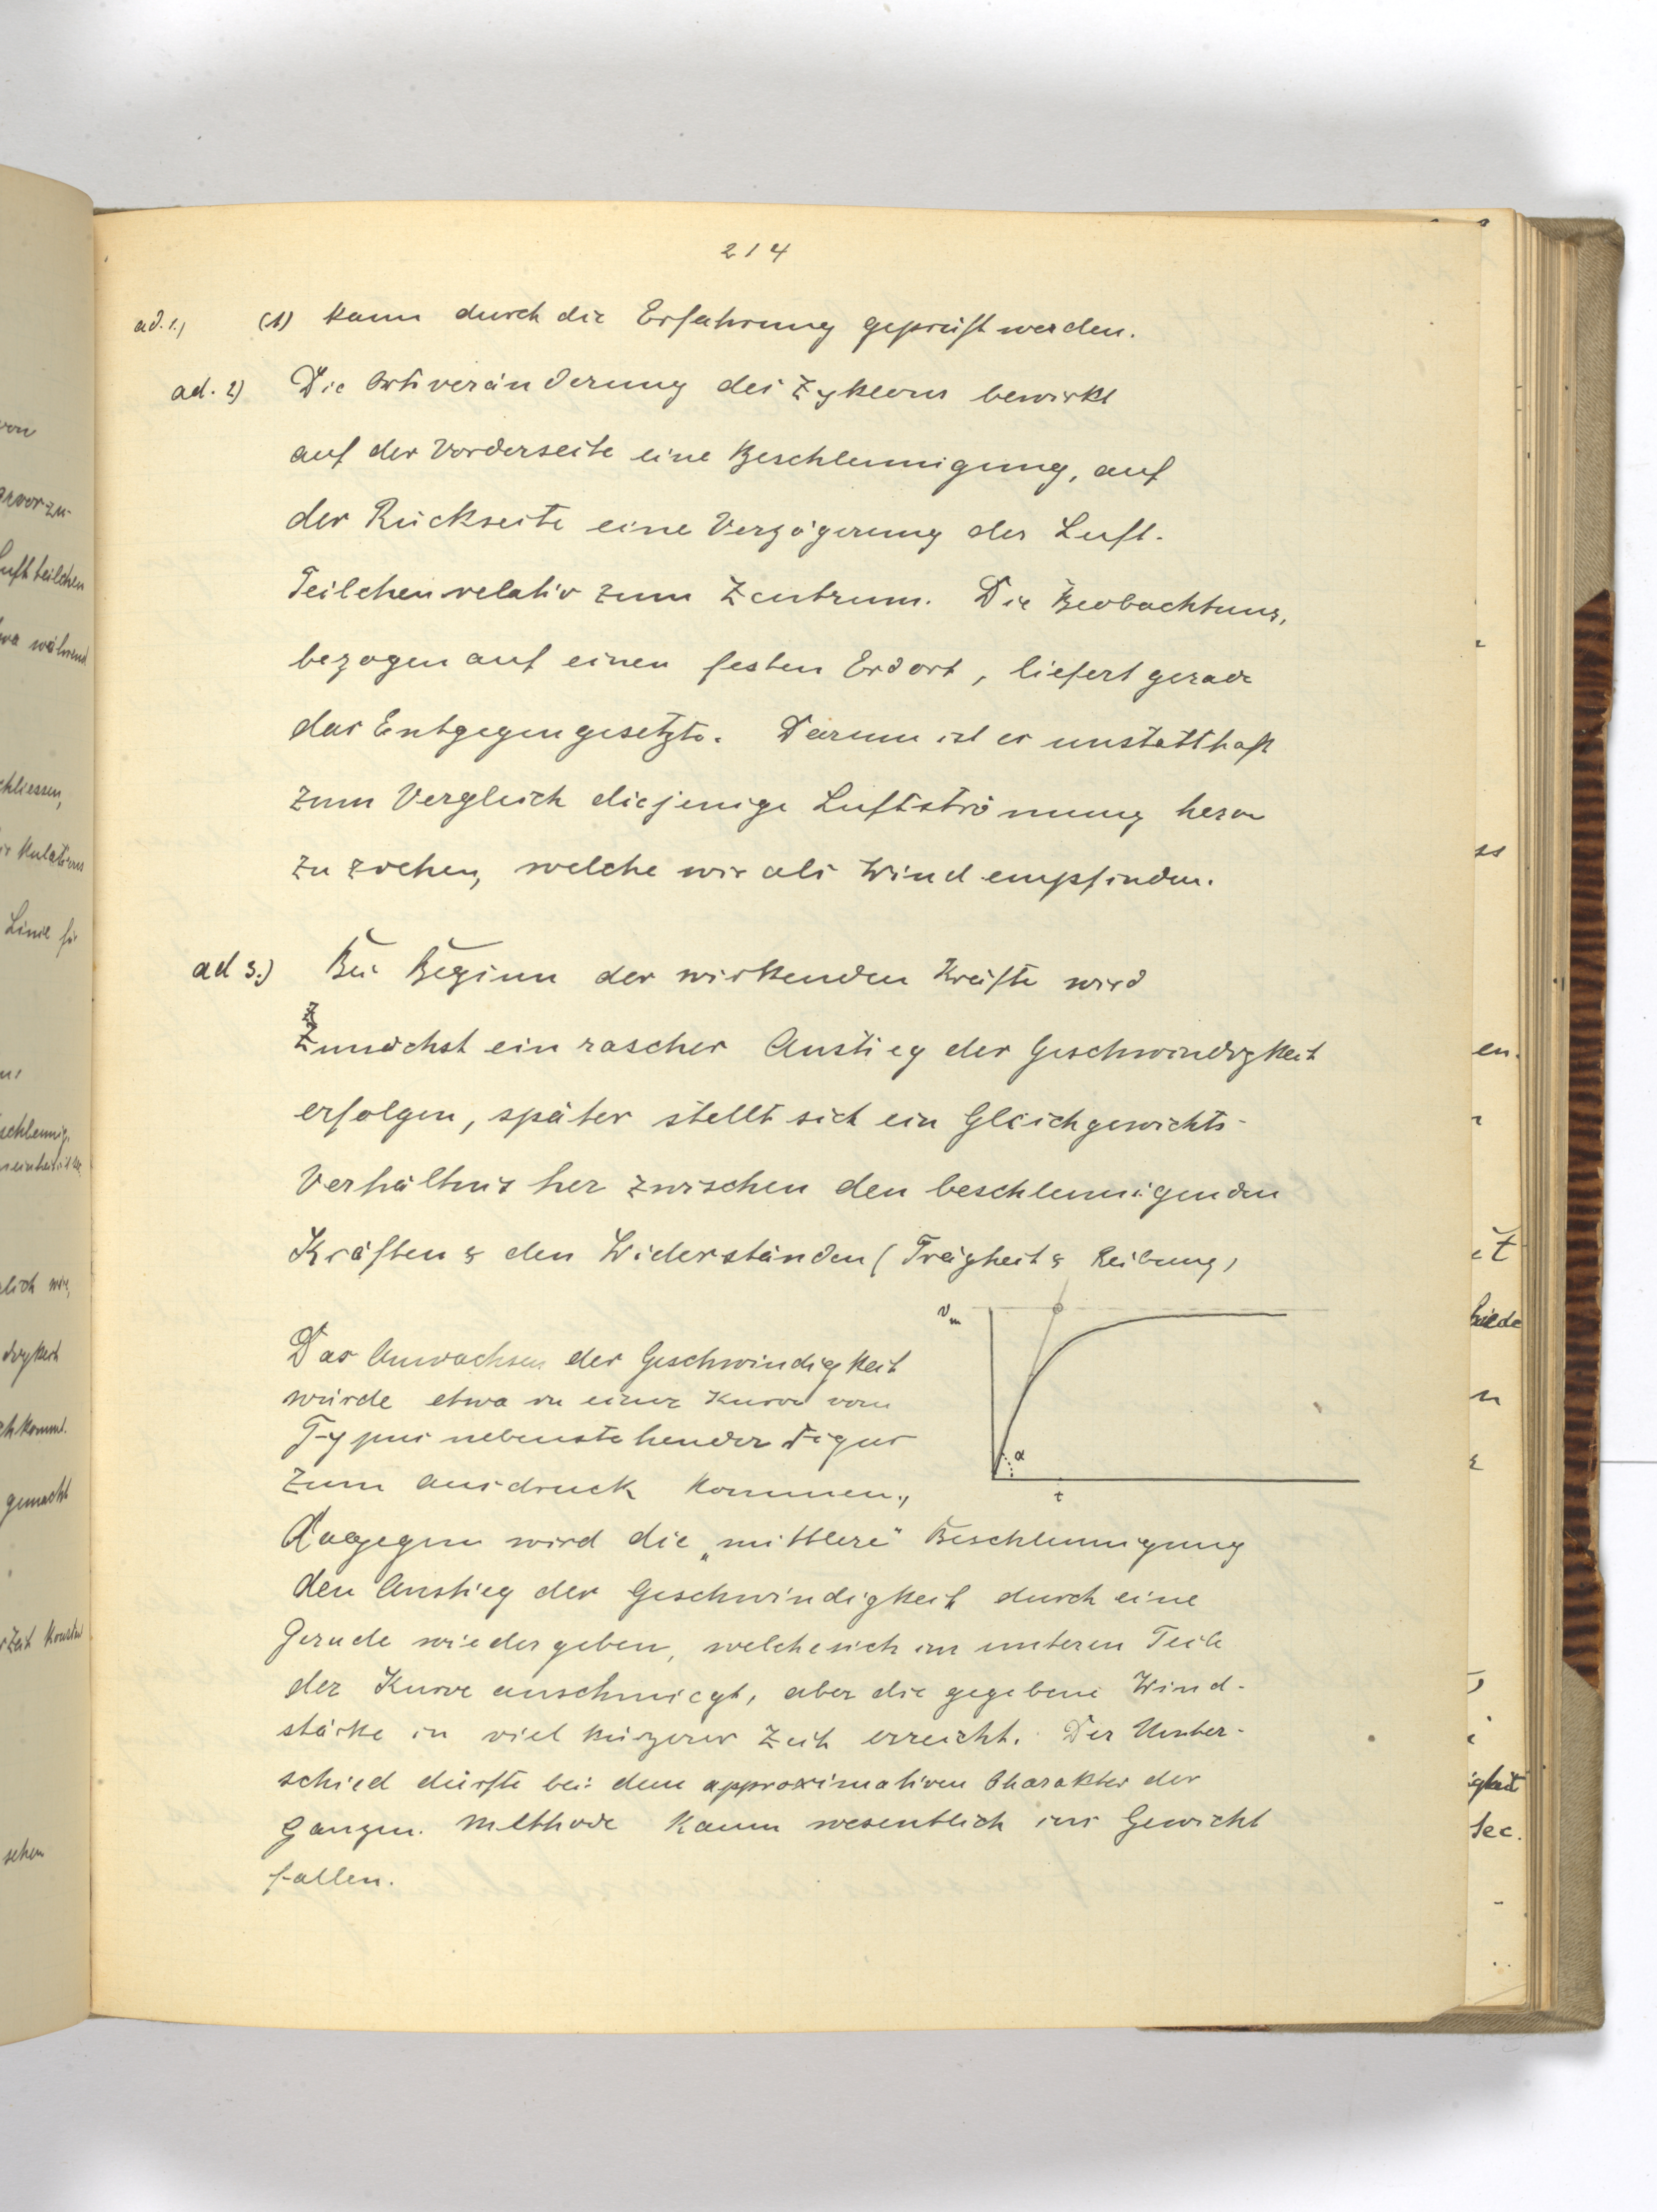 214
ad. 1.) (1) kann durch die Erfahrung geprüft werden.
ad. 2) Die Ortsveränderung des Zyklons bewirkt
auf der Vorderseite eine Beschleunigung, auf
der Rückseite eine Verzögerung der Luft-
Teilchen relativ zum Zentrum. Die Beobachtung,
bezogen auf einen festen Erdort, liefert gerade
das Entgegengesetzte. Darum ist es unstatthaft
zum Vergleich diejenige Luftströmung heran
zu ziehen, welche wir als Wind empfinden.
ad 3.) Bei Beginn der wirkenden Kräfte wird
Zunächst ein rascher Anstieg der Geschwindigkeit
erfolgen, später stellt sich ein Gleichgewichts-
Verhältnis her zwischen den beschleunigenden
Kräften & den Widerständen (Trägheit & Reibung)
Das Anwachsen der Geschwindigkeit
würde etwa in einer Kurve vom
Typus nebenstehender Figur
zum Ausdruck kommen.,
vm
α
t
Dagegen wird die „mittlere" Beschleunigung
den Anstieg der Geschwindigkeit durch eine
Gerade wiedergeben, welche sich im unteren Teile
der Kurve anschmiegt, aber die gegebene Wind-
stärke in viel kürzerer Zeit erreicht. Der Unter-
schied dürfte bei dem approximativen Charakter der
ganzen. Methode kaum wesentlich ins Gewicht
fallen.